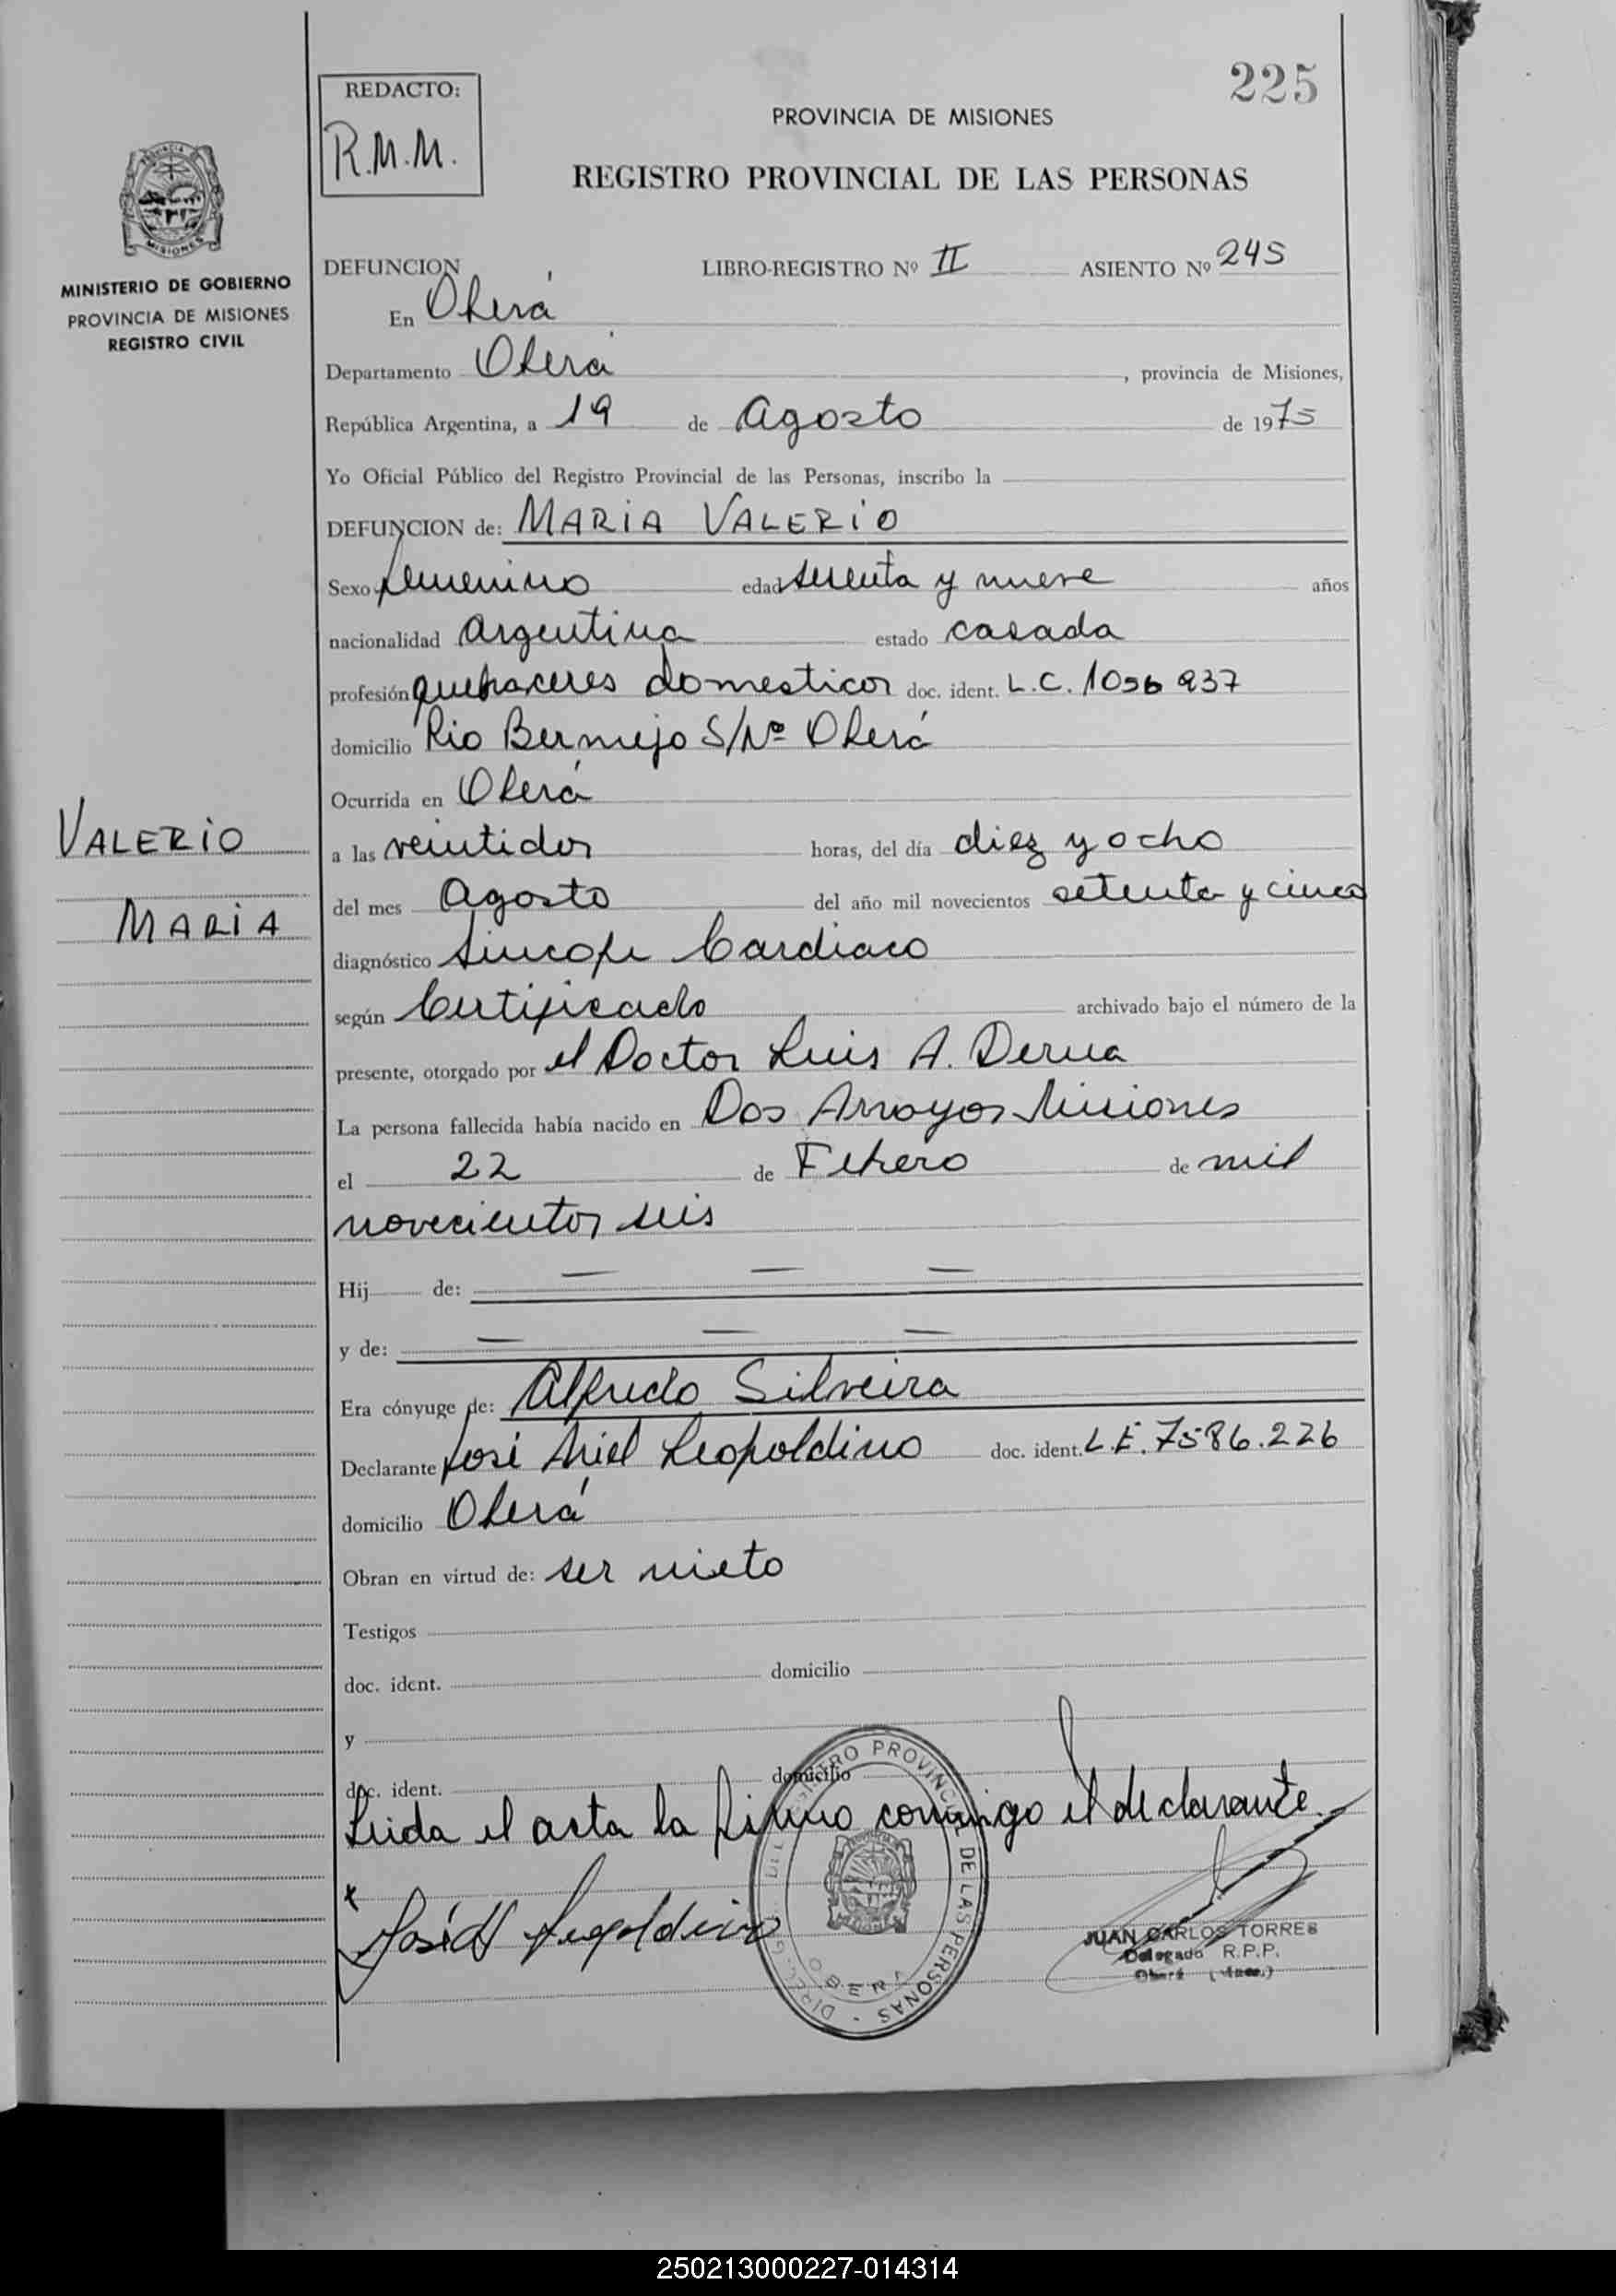 225
REDACTO:
R.M.M.
PROVINCIA DE MISIONES
REGISTRO PROVINCIAL DE LAS PERSONAS
MISIONES
MINISTERIO DE GOBIERNO
PROVINCIA DE MISIONES
REGISTRO CIVIL
DEFUNCION LIBRO-REGISTRO Nº II ASIENTO Nº 245
En Oberá
Departamento Oberá, provincia de Misiones,
República Argentina, a 19 de Agosto de 1975
Yo Oficial Público del Registro Provincial de las Personas, inscribo la
DEFUNCION de: MARIA VALERIO
Sexo femenino edad sesenta y nueve años
nacionalidad Argentina estado casada
profesión quehaceres domesticos doc. ident. L.C. 1056 937
domicilio Rio Bermejo S/Nº Oberá
Ocurrida en Oberá
VALERIO
MARIA
a las veintidos horas, del día diez y ocho
del mes Agosto del año mil novecientos setenta y cinco
diagnóstico Sincope Cardiaco
según Certificado archivado bajo el número de la
presente, otorgado por el Doctor Luis A. Derna
La persona fallecida había nacido en Dos Arroyos Misiones
el 22 de Febrero de mil
novecientos seis
Hij de: — — —
y de: — — —
Era cónyuge de: Alfredo Silveira
Declarante José Ariel Leopoldino doc. ident. L.E. 7586.226
domicilio Oberá
Obran en virtud de: ser nieto
Testigos
doc. ident. domicilio
y
doc. ident. domicilio
Leida el acta la firmo conmigo el declarante.
REGISTRO PROVINCIAL DE LAS PERSONAS
OBERA
JUAN CARLOS TORRES
Delegado R.P.P.
Oberá (Mnes.)
250213000227-014314